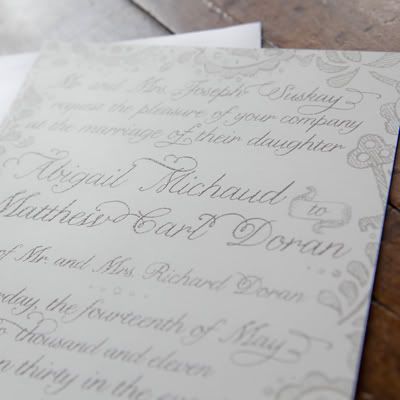 Mr. and Mrs. Joseph Suskay
request the pleasure of your company
at the marriage of their daughter
Abigail Michaud
to
Matthew Carl Doran
of Mr. and Mrs. Richard Doran
the fourteenth of May
thousand and eleven
thirty in the